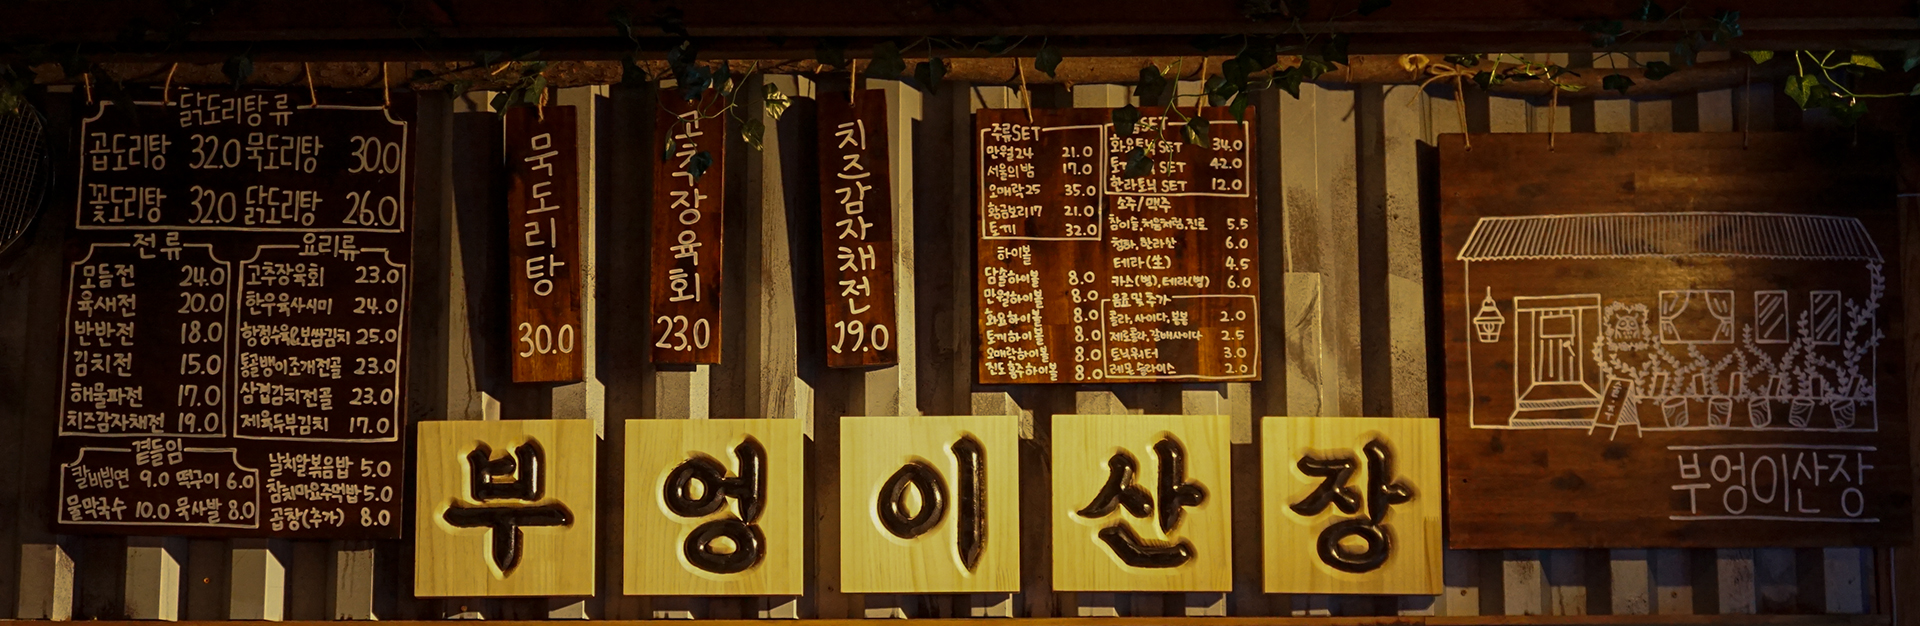 닭도리탕 류
곱도리탕 32.0 묵도리탕 30.0
꽃도리탕 32.0 닭도리탕 26.0
전류
모듬전 24.0
육새전 20.0
반반전 18.0
김치전 15.0
해물파전 17.0
치즈감자채전 19.0
요리류
고추장육회 23.0
한우육사시미 24.0
항정수육&보쌈김치 25.0
통골뱅이조개전골 23.0
삼겹김치전골 23.0
제육두부김치 17.0
곁들임
칼비빔면 9.0 떡구이 6.0
물막국수 10.0 묵사발 8.0
날치알볶음밥 5.0
참치마요주먹밥 5.0
곱창(추가) 8.0
묵도리탕
30.0
고추장육회
23.0
치즈감자채전
19.0
주류SET
만월24 21.0
서울의밤 17.0
오매락25 35.0
황금보리17 21.0
토끼 32.0
하이볼
담솔하이볼 8.0
만월하이볼 8.0
화요하이볼 8.0
토끼하이볼 8.0
오매락하이볼 8.0
진도홍주하이볼 8.0
SET
화요토닉 SET 34.0
SET 42.0
한라토닉 SET 12.0
소주/맥주
참이슬,처음처럼,진로 5.5
청하,한라산 6.0
테라(生) 4.5
카스(병),테라(병) 6.0
음료 및 추가
콜라,사이다,봉봉 2.0
제로콜라,갈배사이다 2.5
토닉워터 3.0
레몬 슬라이스 2.0
부엉이산장
부엉이산장